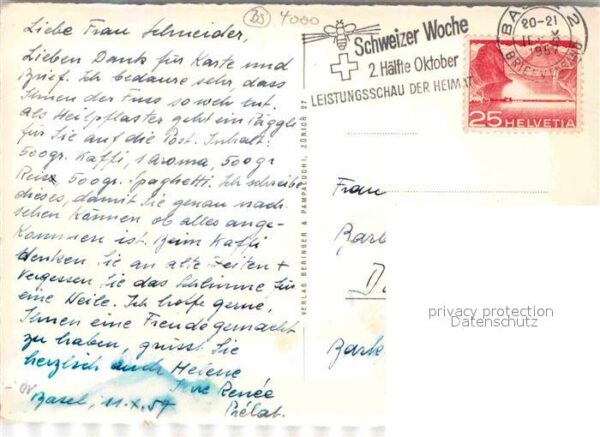 BS 4000
Liebe Frau Schneider,
Lieben Dank für Karte und
Brief. Ich bedaure sehr, dass
Ihnen der Fuss so weh tut.
als Heilpflaster geht ein Päggli
für Sie auf die Post. Inhalt:
500gr. Kaffi, 1 Aroma, 500gr
Reis, 500gr. Spaghetti. Ich schreibe
dieses, damit Sie genau nach
sehen können ob alles ange-
kommen ist. Beim Kaffi
denken Sie an alte Zeiten +
vergessen Sie das Schlimme für
eine Weile. Ich hoffe gerne,
Ihnen eine Freude gemacht
zu haben, grüsst Sie
herzlich auch Helene
Ihre Renée
Basel, 11.X.57
VERLAG BERINGER & PAMPALUCHI, ZÜRICH 27
Schweizer Woche
2. Hälfte Oktober
LEISTUNGSSCHAU DER HEIMAT
BASEL 2
20-21
1957
BRIEFVERSAND
25 HELVETIA
Frau
privacy protection
Datenschutz